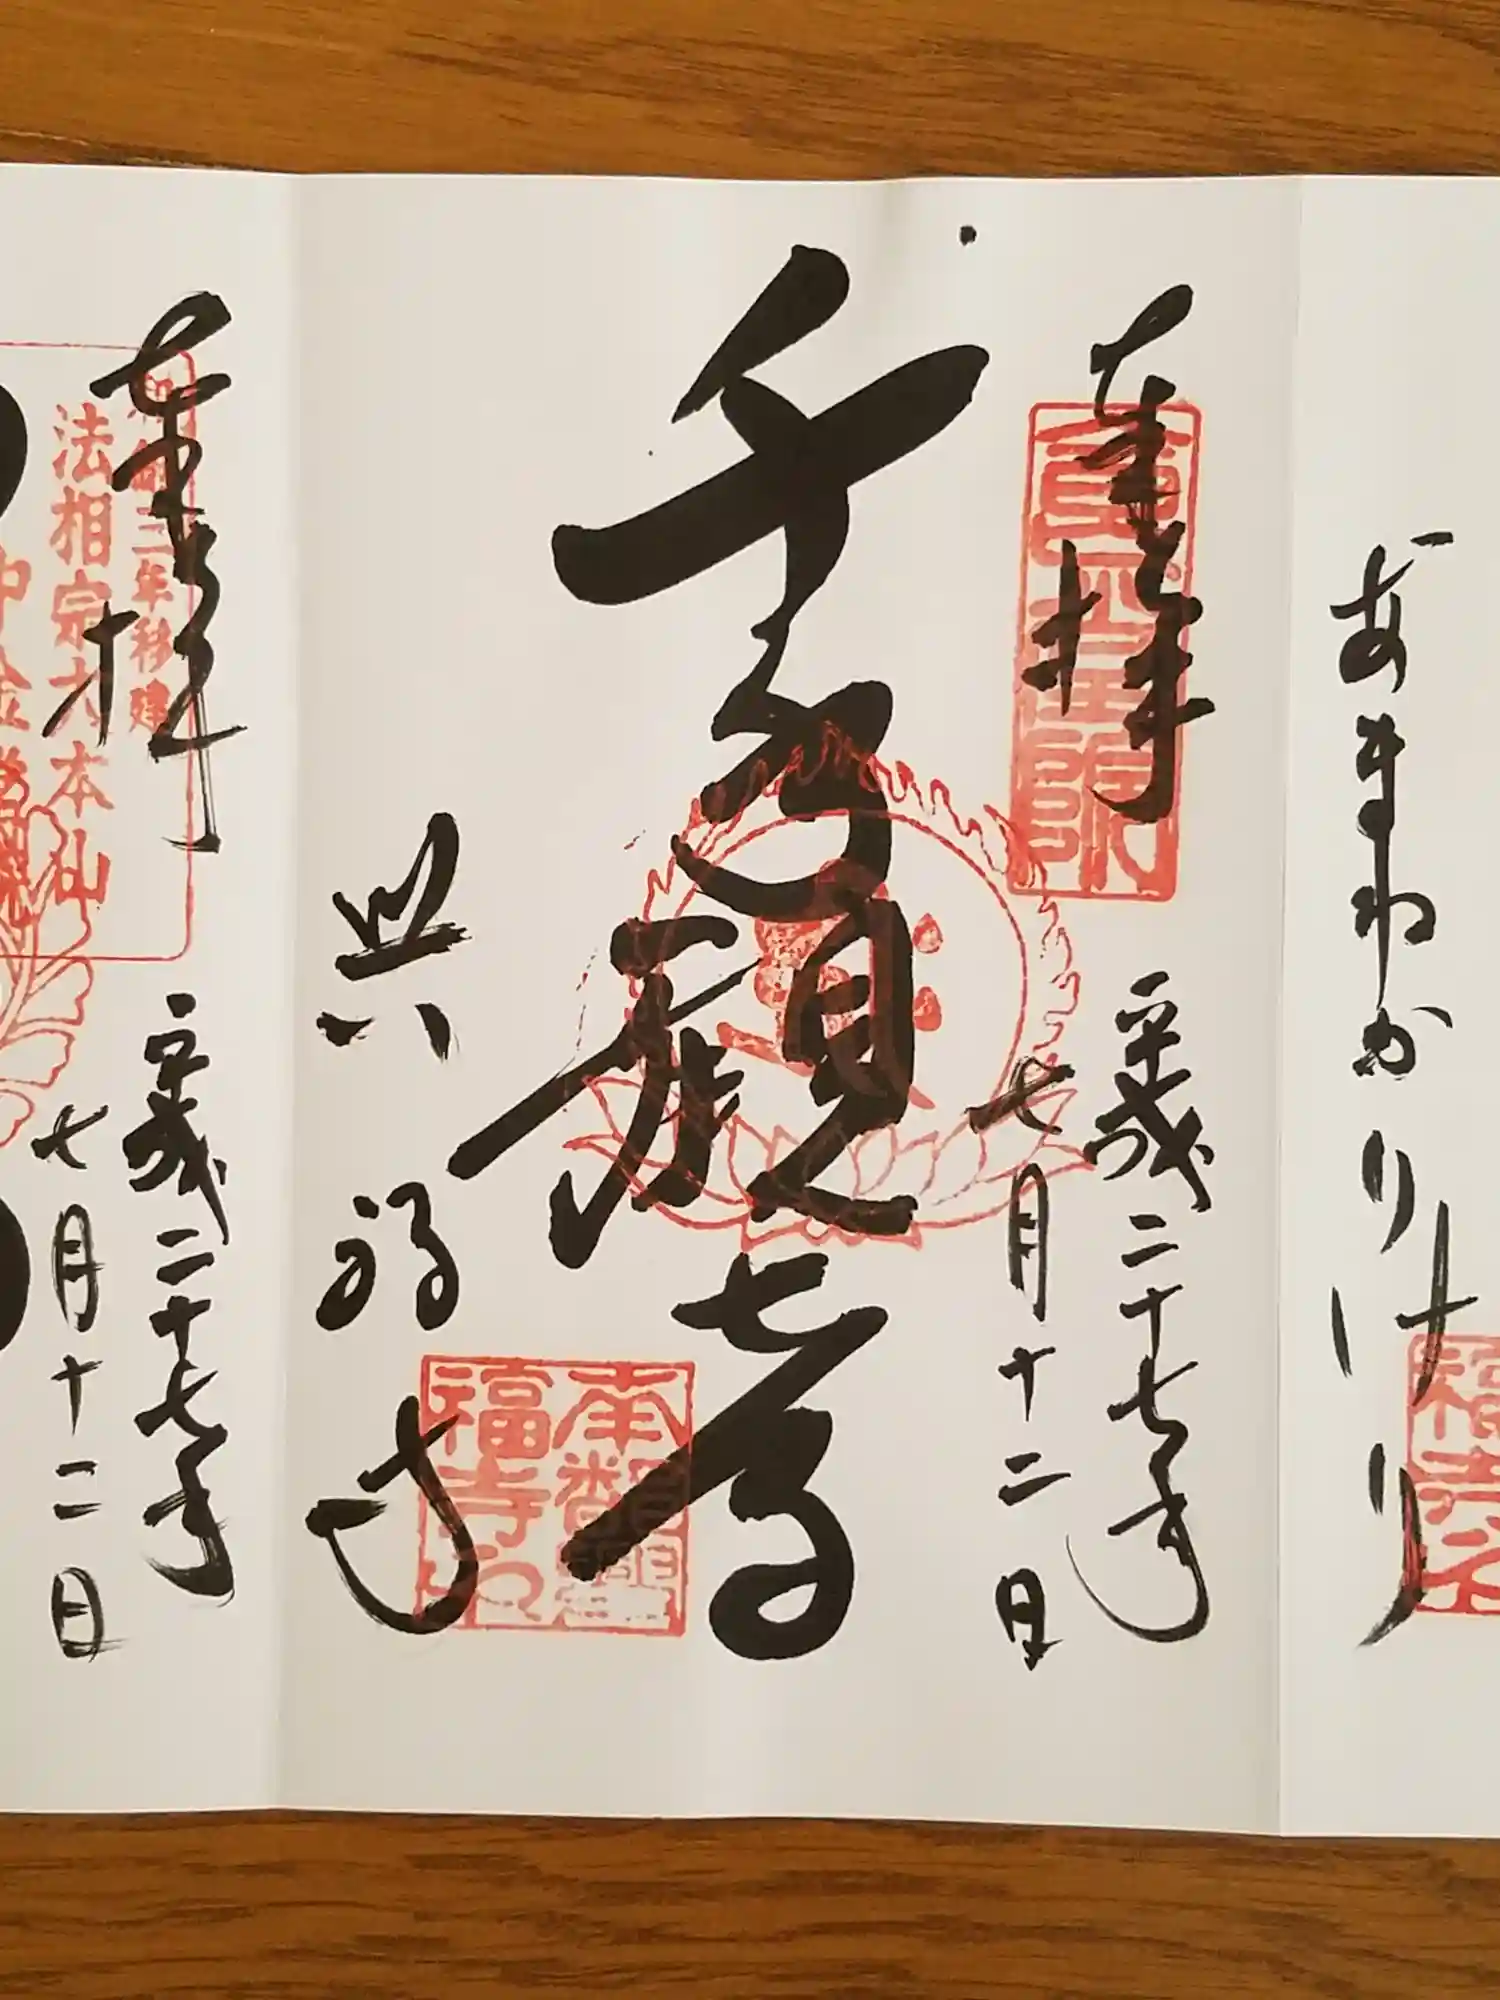 あまねかりけり
奉拝
平成二十七年
七月十二日
千手観音
興福寺
奉拝
平成二十七年
七月十二日
三年移建
法相宗大本山
中金堂